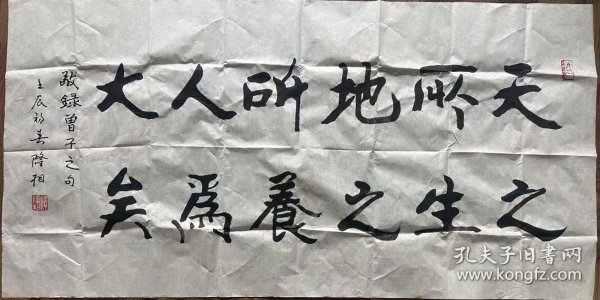 天之
所生
地之
所養
人爲
大矣
敬錄曾子之句
壬辰初春
孔夫子旧书网
www.kongfz.com